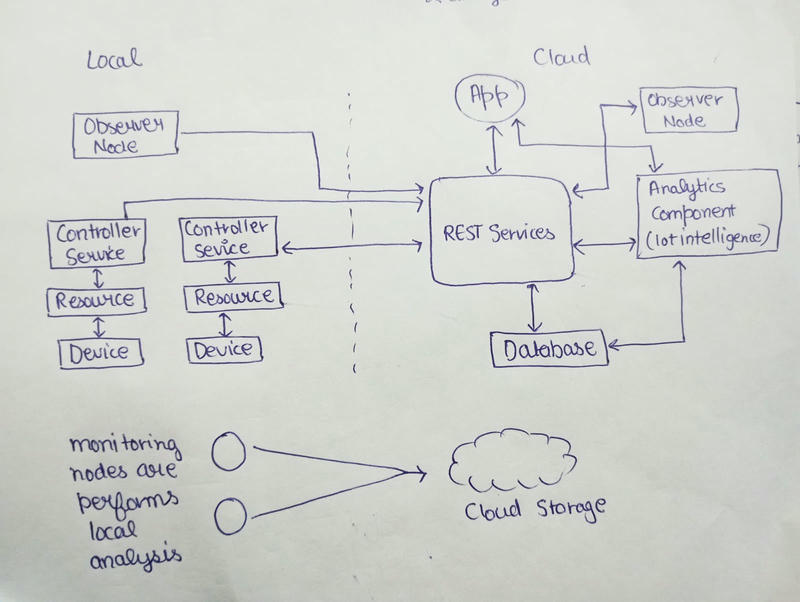 Local
Cloud
App
Observer
Node
Observer
Node
Analytics
Component
(Iot intelligence)
REST Services
Controller
Service
Controller
Sevice
Resource
Resource
Device
Device
Database
monitoring
nodes are
performs
local
analysis
Cloud Storage